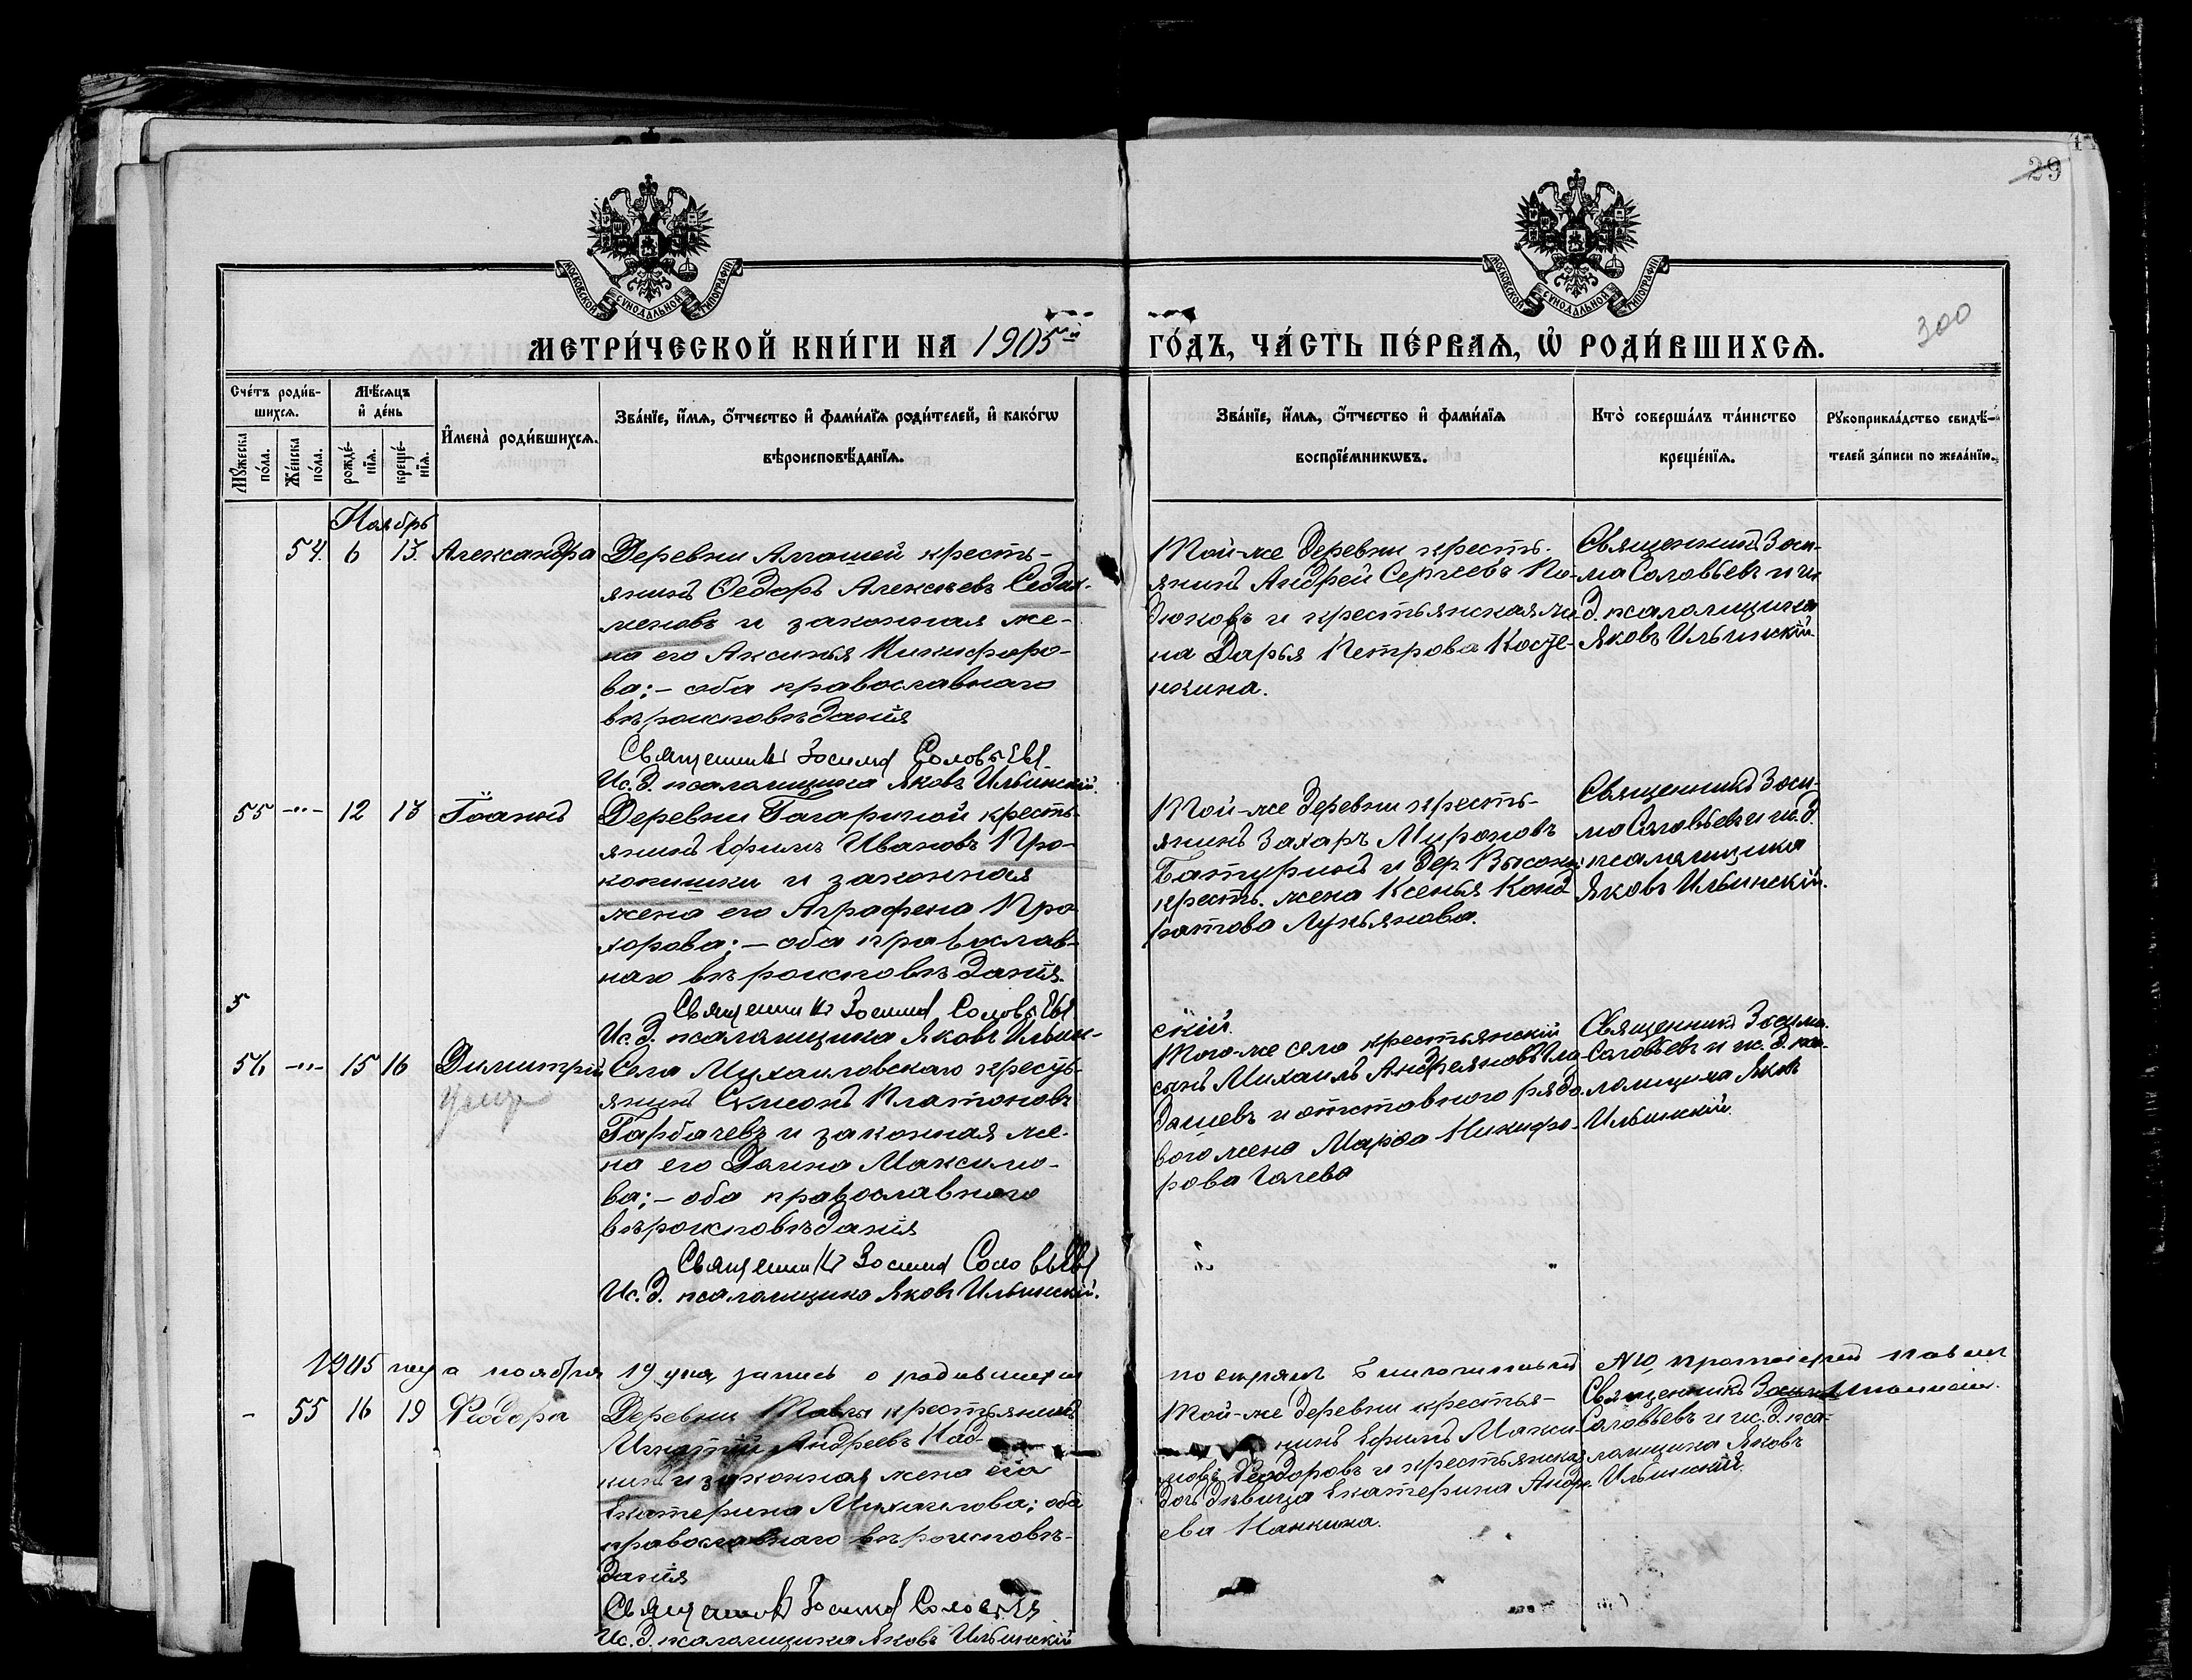 29
300
МОСКОВСКОЙ СѴНОДАЛЬНОЙ ТИПОГРАФІИ
МОСКОВСКОЙ СѴНОДАЛЬНОЙ ТИПОГРАФІИ
МЕТРИ́ЧЕСКОЙ КНИ́ГИ НА 1905й
ГО́ДЪ, ЧА́СТЬ ПЕ́РВАЯ, Ѡ РОДИ́ВШИХСЯ.
Сче́тъ роди́в-
шихся.
Мꙋ́жеска по́ла.
Же́нска по́ла.
Мѣ́сяцъ и де́нь
рожде́-
нїя.
креще́-
нїя.
И҆мена̀ роди́вшихся.
Зва́нїе, и҆́мя, ѻ҆́тчество и҆ фами́лїя роди́телей, и҆ како́гѡ
вѣроисповѣ́данїя.
Зва́нїе, и҆́мя, ѻ҆́тчество и҆ фами́лїя
воспрїе́мникѡвъ.
Кто̀ соверша́лъ та́инство
креще́нїя.
Рꙋкоприкла́дство свидѣ́-
телей за́писи по жела́нїю.
Ноябрь
54. 6 13. Александра
Деревни Алгашей кресть-
янинъ Ѳедоръ Алексѣевъ
и законная же-
на его Аксинья Никифоро-
ва; – оба православнаго
вѣроисповѣданія
Священникъ Зосима Соловьевъ
Ис. д. псаломщика Яковъ Ильинскій.
Той-же деревни кресть-
янинъ Андрей Сергѣевъ По-
дюковъ и крестьянская же-
на Дарья Петрова
Священникъ Зоси-
ма Соловьевъ и и.
д. псаломщика
Яковъ Ильинскій.
55 -"- 12 13 Іоаннъ
Деревни Гагариной кресть-
янинъ Ефимъ Ивановъ Про-
копишки и законная
жена его Аграфена Про-
хорова; – оба православ-
наго вѣроисповѣданія.
Священникъ Зосима Соловьевъ
Ис. д. псаломщика Яковъ Ильин-
скій.
Той-же деревни кресть-
янинъ Захаръ Мироновъ
Батуринъ и дер. Высокой
кресть. жена Ксенья Конд-
ратова Лукьянова.
Священникъ Зоси-
ма Соловьевъ и ис. д.
псаломщика
Яковъ Ильинскій.
5
56 -"- 15 16 Димитрій
умер
Села Михаиловскаго кресть-
янинъ Сѵмеонъ Платоновъ
Гарбачевъ и законная же-
на его Домна Максимо-
ва; – оба православнаго
вѣроисповѣданія
Священникъ Зосима Соловьевъ
Ис. д. псаломщика Яковъ Ильинскій.
Того-же села крестьянскій
сынъ Михаилъ Андреяновъ Гла-
дышевъ и отставного рядо-
вого жена Марфа Никифо-
рова Гачева
Священникъ Зосима
Соловьевъ и ис. д. пса-
ломщика Яковъ
Ильинскій.
1905 года ноября 19 дня, запись о родившихся
- 55 16 19 Ѳеодора
Деревни крестьянинъ
Игнатій Андреевъ
и законная жена его
Екатерина Михаилова; оба
православнаго вѣроисповѣ-
данія
Священникъ Зосима Соловьевъ
Ис. д. псаломщика Яковъ Ильинскій
Той-же деревни крестья-
нинъ Ефимъ Макси-
мовъ Ѳеодоровъ и крестьянская
дочь дѣвица Екатерина Андре-
ева
Священникъ Зосима
Соловьевъ и ис. д. пса-
ломщика Яковъ
Ильинскій.